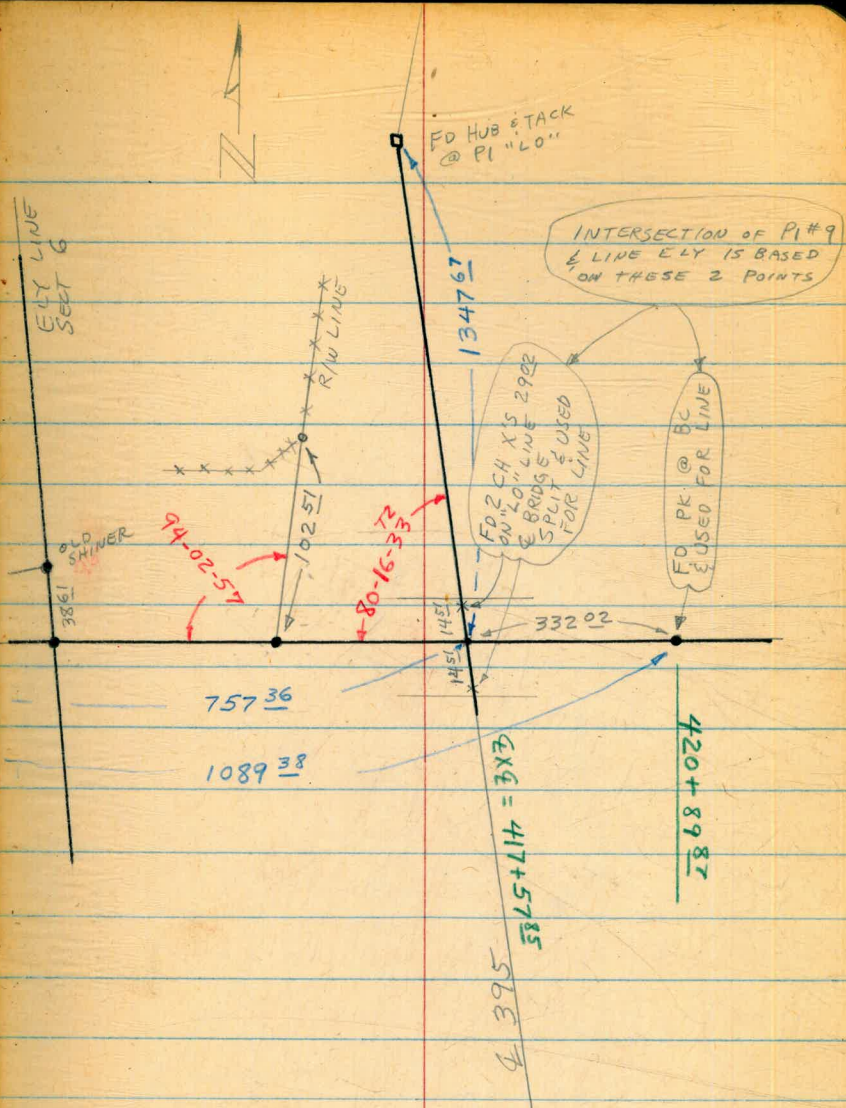 N
FD HUB & TACK
@ PI "LO"
ELY LINE
SECT 6
INTERSECTION OF PI #9
& LINE ELY IS BASED
ON THESE 2 POINTS
R/W LINE
1347 67
FD 2 CH X'S
ON "LO" LINE 29 02
℄ BRIDGE
SPLIT & USED
FOR LINE
FD PK @ BC
& USED FOR LINE
OLD
SHINER
94-02-57
102 51
80-16-33
T2
38 61
14 51
14 51
332 02
757 36
1089 38
℄X℄ = 417+57 85
420+89 87
℄ 395